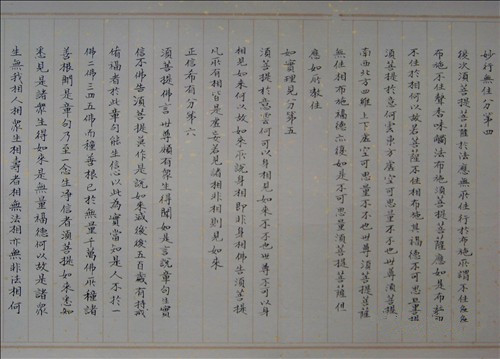 妙行無住分第四
復次須菩提菩薩於法應無所住行於布施所謂不住色
布施不住聲香味觸法布施須菩提菩薩應如是布施
不住於相何以故若菩薩不住相布施其福德不可思量
須菩提於意云何東方虛空可思量不不也世尊須菩提
南西北方四維上下虛空可思量不不也世尊須菩提菩薩
無住相布施福德亦復如是不可思量須菩提菩薩但
應如所教住
如實理見分第五
須菩提於意云何可以身相見如來不不也世尊不可以身
相見如來何以故如來所說身相即非身相佛告須菩提
凡所有相皆是虛妄若見諸相非相則見如來
正信希有分第六
須菩提佛言世尊頗有眾生得聞如是言說章句生實
信不佛告須菩提莫作是說如來滅後後五百歲有持戒
脩福者於此章句能生信心以此為實當知是人不於一
佛二佛三四五佛而種善根已於無量千萬佛所種諸
善根聞是章句乃至一念生淨信者須菩提如來悉知
悉見是諸眾生得如來是無量福德何以故是諸眾
生無我相人相眾生相壽者相無法相亦無非法相何